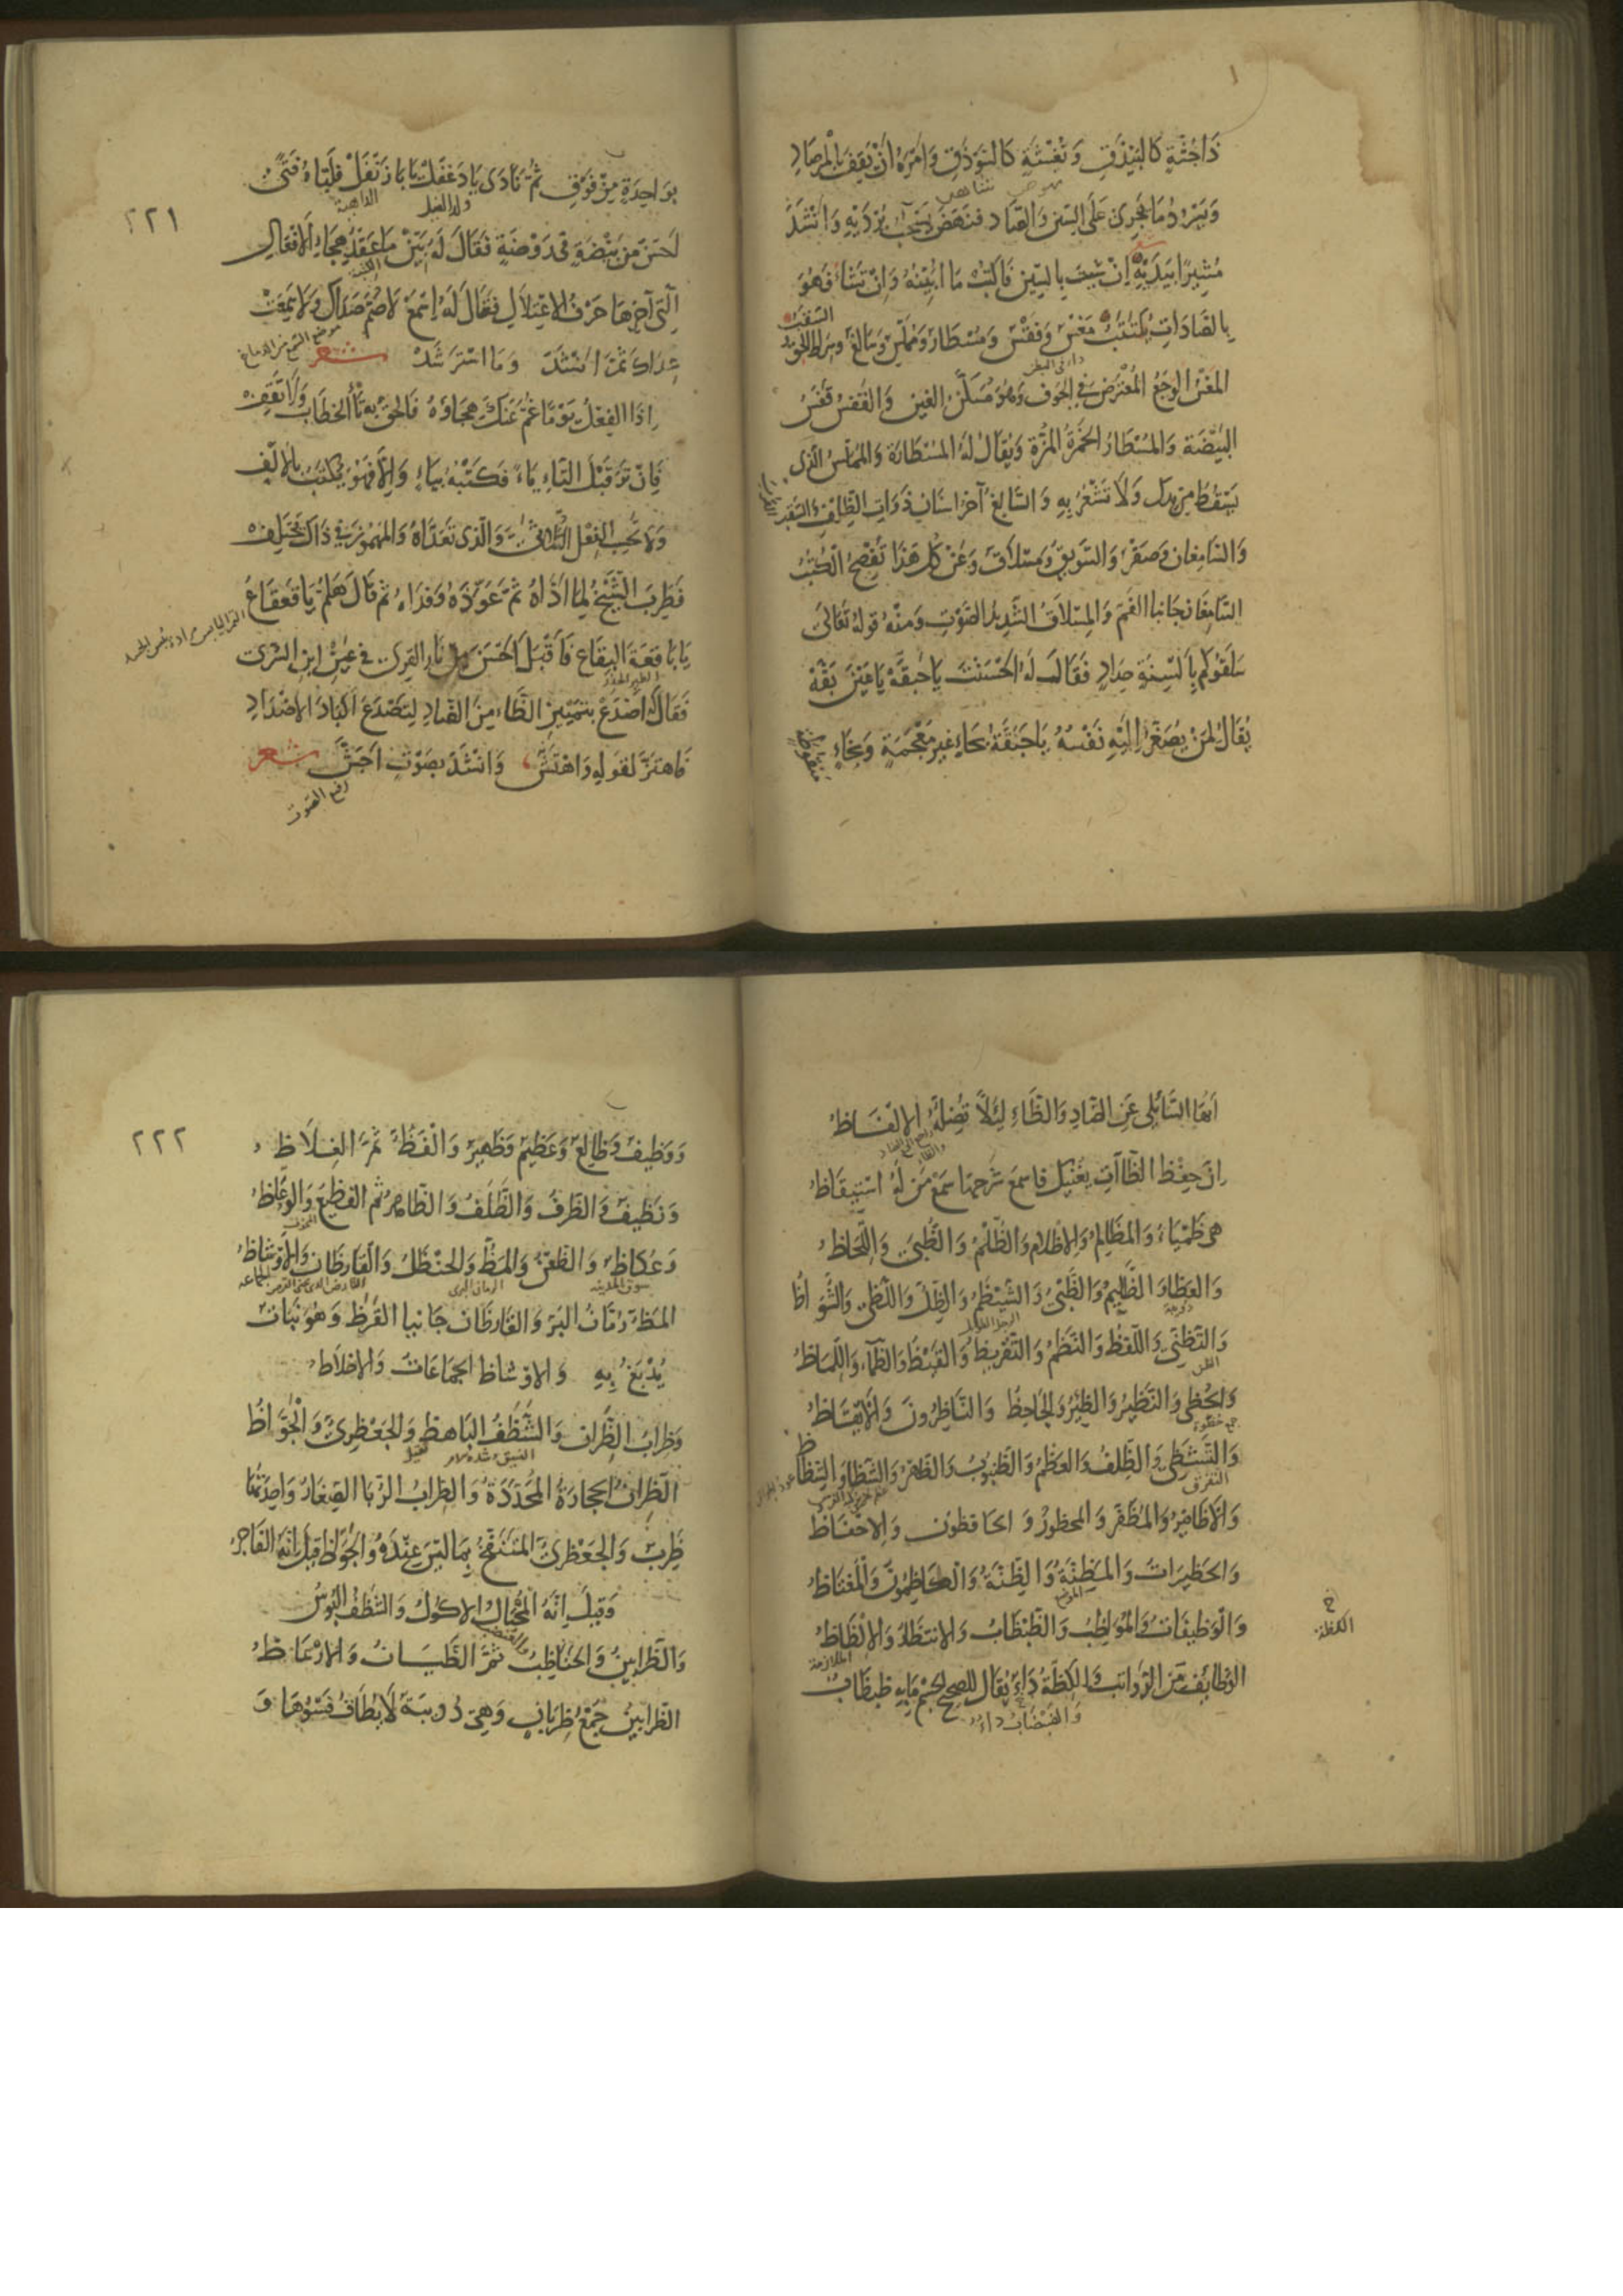 ذَا جُثَّةٍ كَالبَيْذَقِ وَنَغْشَةٍ كَالسَّوْذَقِ وَامَرَهُ اَنْ يَقِفَ بِالمِرْصَادِ
وَيَسْرُدَ مَا يَجْرِى عَلَى السِّينِ وَالصَّادِ فَنَهَضَ يَسْحَبُ بُرْدَيْهِ وَانْشَدَ
مُشِيرًا بِيَدَيْهِ اِنْ شِئْتَ بِالسِّينِ فَاكْتُبْ مَا اُبَيِّنُهُ وَاِنْ تَشَاءْ فَهُوَ
بِالصَّادَاتِ يُكْتَتَبُ مَغْسٌ وَفَقْسٌ وَمُسْطَارٌ وَمُمَّلِسٌ وَسَالِغٌ وَسِرَاطُ الحَقِّ
السَّقَبُ
المَغْسُ الوَجَعُ المُعْتَرِضُ فِى الجَوْفِ وَهُوَ مُسَكَّنُ الغَيْنِ وَالفَقْسُ فَقْسُ
البَيْضَةِ وَالمُسْطَارُ الخَمْرَةُ المُزَّةُ وَيُقَالُ لَهُ المُسْطَارَةُ وَالمُمَّلِسُ الَّذِى
يَسْقُطُ مِنْ يَدِكَ وَلَا تَشْعُرُ بِهِ وَالسَّالِغُ آخِرُ اسْنَانِ ذَوَاتِ الظِّلْفِ
وَالسَّامِغَانِ وَصَقْرٌ وَالسَّوِيقُ وَمِسْلَاقٌ وَعَنْ كُلِّ هَذَا تُفْصِحُ الكُتُبُ
السَّامِغَانِ جَانِبَا الفَمِ وَالمِسْلَاقُ الشَّدِيدُ الصَّوْتِ وَمِنْهُ قَوْلُهُ تَعَالَى
سَلَقُوكُم بِاَلْسِنَةٍ حِدَادٍ فَقَالَ لَهُ اَحْسَنْتَ يَا حَبَقَّةُ يَا عَيْنَ بَقَّةٍ
يُقَالُ لِمَنْ يُصَغَّرُ اِلَيْهِ نَفْسُهُ يَا حَبَقَّةُ بِحَاءٍ غَيْرِ مُعْجَمَةٍ وَبِخَاءٍ
منقوطة
٢٢١
بِوَاحِدَةٍ مِنْ فَوْقٍ ثُمَّ نَادَى يَا دَغْفَلُ يَا بَا زَنْفَلْ فَلَبَّاهُ فَتًى
ولد الفيل الداهية
اَحْسَنُ مِنْ بَيْضَةٍ فِى رَوْضَةٍ فَقَالَ لَهُ بَيِّنْ مَا عَقْدُ هِجَاءِ الاَفْعَالِ
الَّتِى آخِرُهَا حَرْفُ الاِعْتِلَالِ فَقَالَ لَهُ اِسْمَعْ لَا صُمَّ صَدَاكَ وَلَا سَمِعَتْ
عِدَاكَ ثُمَّ اَنْشَدَ وَمَا اسْتَرْشَدَ شعر
اِذَا الفِعْلُ يَوْمًا غُمَّ عَنْكَ هِجَاؤُهُ فَالحِقْ بِهِ تَاْءَ الخِطَابِ وَلَا تَقِفْ
فَاِنْ تَرَ قَبْلَ التَّاءِ يَاءً فَكَتْبُهُ بِيَاءٍ وَاِلَّا فَهُوَ يُكْتَبُ بِالاَلِفْ
وَلَا تَحْسِبِ الفِعْلَ الثُّلَاثِىَّ وَالَّذِى تَعَدَّاهُ وَالمَهْمُوزَ فِى ذَاكَ يَخْتَلِفْ
فَطَرِبَ الشَّيْخُ لِمَا اَدَّاهُ ثُمَّ عَوَّذَهُ وَفَدَّاهُ ثُمَّ قَالَ هَلُمَّ يَا قَعْقَاعُ
يَا بَاقِعَةَ البِقَاعِ فَاَقْبَلَ اَحْسَنَ مِنْ نَارِ القِرَى فِى عَيْنِ ابْنِ السُّرَى
فَقَالَ لَهُ اصْدَعْ بِتَمْيِيزِ الظَّاءِ مِنَ الضَّادِ لِتَصْدَعَ اَكْبَادَ الاَضْدَادِ
فَاهْتَزَّ لِقَوْلِهِ وَاهْتَشَّ وَاَنْشَدَ بِصَوْتٍ اَجَشَّ شعر
رفيع الصوت
اَيُّهَا السَّائِلِى عَنِ الضَّادِ وَالظَّاءِ لِئَلَّا تُضِلَّهُ الاَلْفَاظُ
اِنَّ حِفْظَ الظَّاآتِ يُغْنِيكَ فَاسْمَعْ شَرْحَهَا سَمْعَ مَنْ لَهُ اسْتِيقَاظُ
هِىَ ظَمْيَاءُ وَالمَظَالِمُ وَالاِظْلَامُ وَالظَّلْمُ وَالظُّبَى وَاللِّحَاظُ
وَالعَظَا وَالظَّلِيمُ وَالظَّبْىُ وَالشَّيْظَمُ وَالظِّلُّ وَاللَّظَى وَالشُّوَاظُ
وَالتَّظَنِّى وَاللَّفْظُ وَالنَّظْمُ وَالتَّقْرِيظُ وَالقَيْظُ وَالظَّمَاءُ وَاللَّمَاظُ
وَالحُظَى وَالنَّظِيرُ وَالظِّئْرُ وَالجَاحِظُ وَالنَّاظِرُونَ وَالاَيْقَاظُ
وَالتَّشَظِّى وَالظِّلْفُ وَالعَظْمُ وَالظُّنْبُوبُ وَالظَّهْرُ وَالشَّظَا وَالشِّظَاظُ
وَالاَظَافِيرُ وَالمُظَفَّرُ وَالمَحْظُورُ وَالحَافِظُونَ وَالاِحْفَاظُ
وَالحَظِيرَاتُ وَالمَظِنَّةُ وَالظِّنَّةُ وَالكَاظِمُونَ وَالمُغْتَاظُ
وَالوَظِيفَاتُ وَالمُوَاظِبُ وَالظَّبْظَابُ وَالاِنْتِظَارُ وَالاِلْظَاظُ
الملازمة
الوَظَايِفُ مِنَ الرَّوَاتِبِ وَالكِظَّةُ دَاءٌ يُقَالُ لِلصَّحِيحِ الجِسْمِ مَا بِهِ ظَبْظَابٌ
٢٢٢
وَوَظِيفٌ وَظَالِعٌ وَعَظِيمٌ وَظَهِيرٌ وَالفَظُّ ثُمَّ الغِلَاظُ
وَنَظِيفٌ وَالظَّرْفُ وَالظَّلَفُ وَالظَّاهِرُ ثُمَّ الفَظِيعُ وَالوُعَّاظُ
وَعُكَاظٌ وَالظَّعْنُ وَالمَظُّ وَالحَنْظَلُ وَالقَارِظَانِ وَالاَوْشَاظُ
المَظُّ رُمَّانُ البَرِّ وَالقَارِظَانِ جَانِيَا القَرَظِ وَهُوَ نَبَاتٌ
يُدْبَغُ بِهِ وَالاَوْشَاظُ الجَمَاعَاتُ وَالاَخْلَاطُ
وَظِرَابُ الظِّرَانِ وَالشَّظَفُ البَاهِظُ وَالجَعْظَرِىُّ وَالجَوَّاظُ
الظِّرَانُ الحِجَارَةُ المُحَدَّدَةُ وَالظِّرَابُ الرُّبَا الصِّغَارُ وَاحِدَتُهَا
ظَرِبٌ وَالجَعْظَرِىُّ المُنْتَفِخُ بِمَا لَيْسَ عِنْدَهُ وَالجَوَّاظُ قِيلَ اِنَّهُ الفَاجِرُ
وَقِيلَ اِنَّهُ المُخْتَالُ الاَكُولُ وَالشَّظَفُ البُؤْسُ
وَالظَّرَابِينُ وَالحَنَاظِبُ ثُمَّ الظَّيَّانُ وَالاَرْعَاظُ
الظَّرَابِينُ جَمْعُ ظَرِبَانٍ وَهِىَ دُوَيْبَةٌ لَا يُطَاقُ فَسْوُهَا وَ